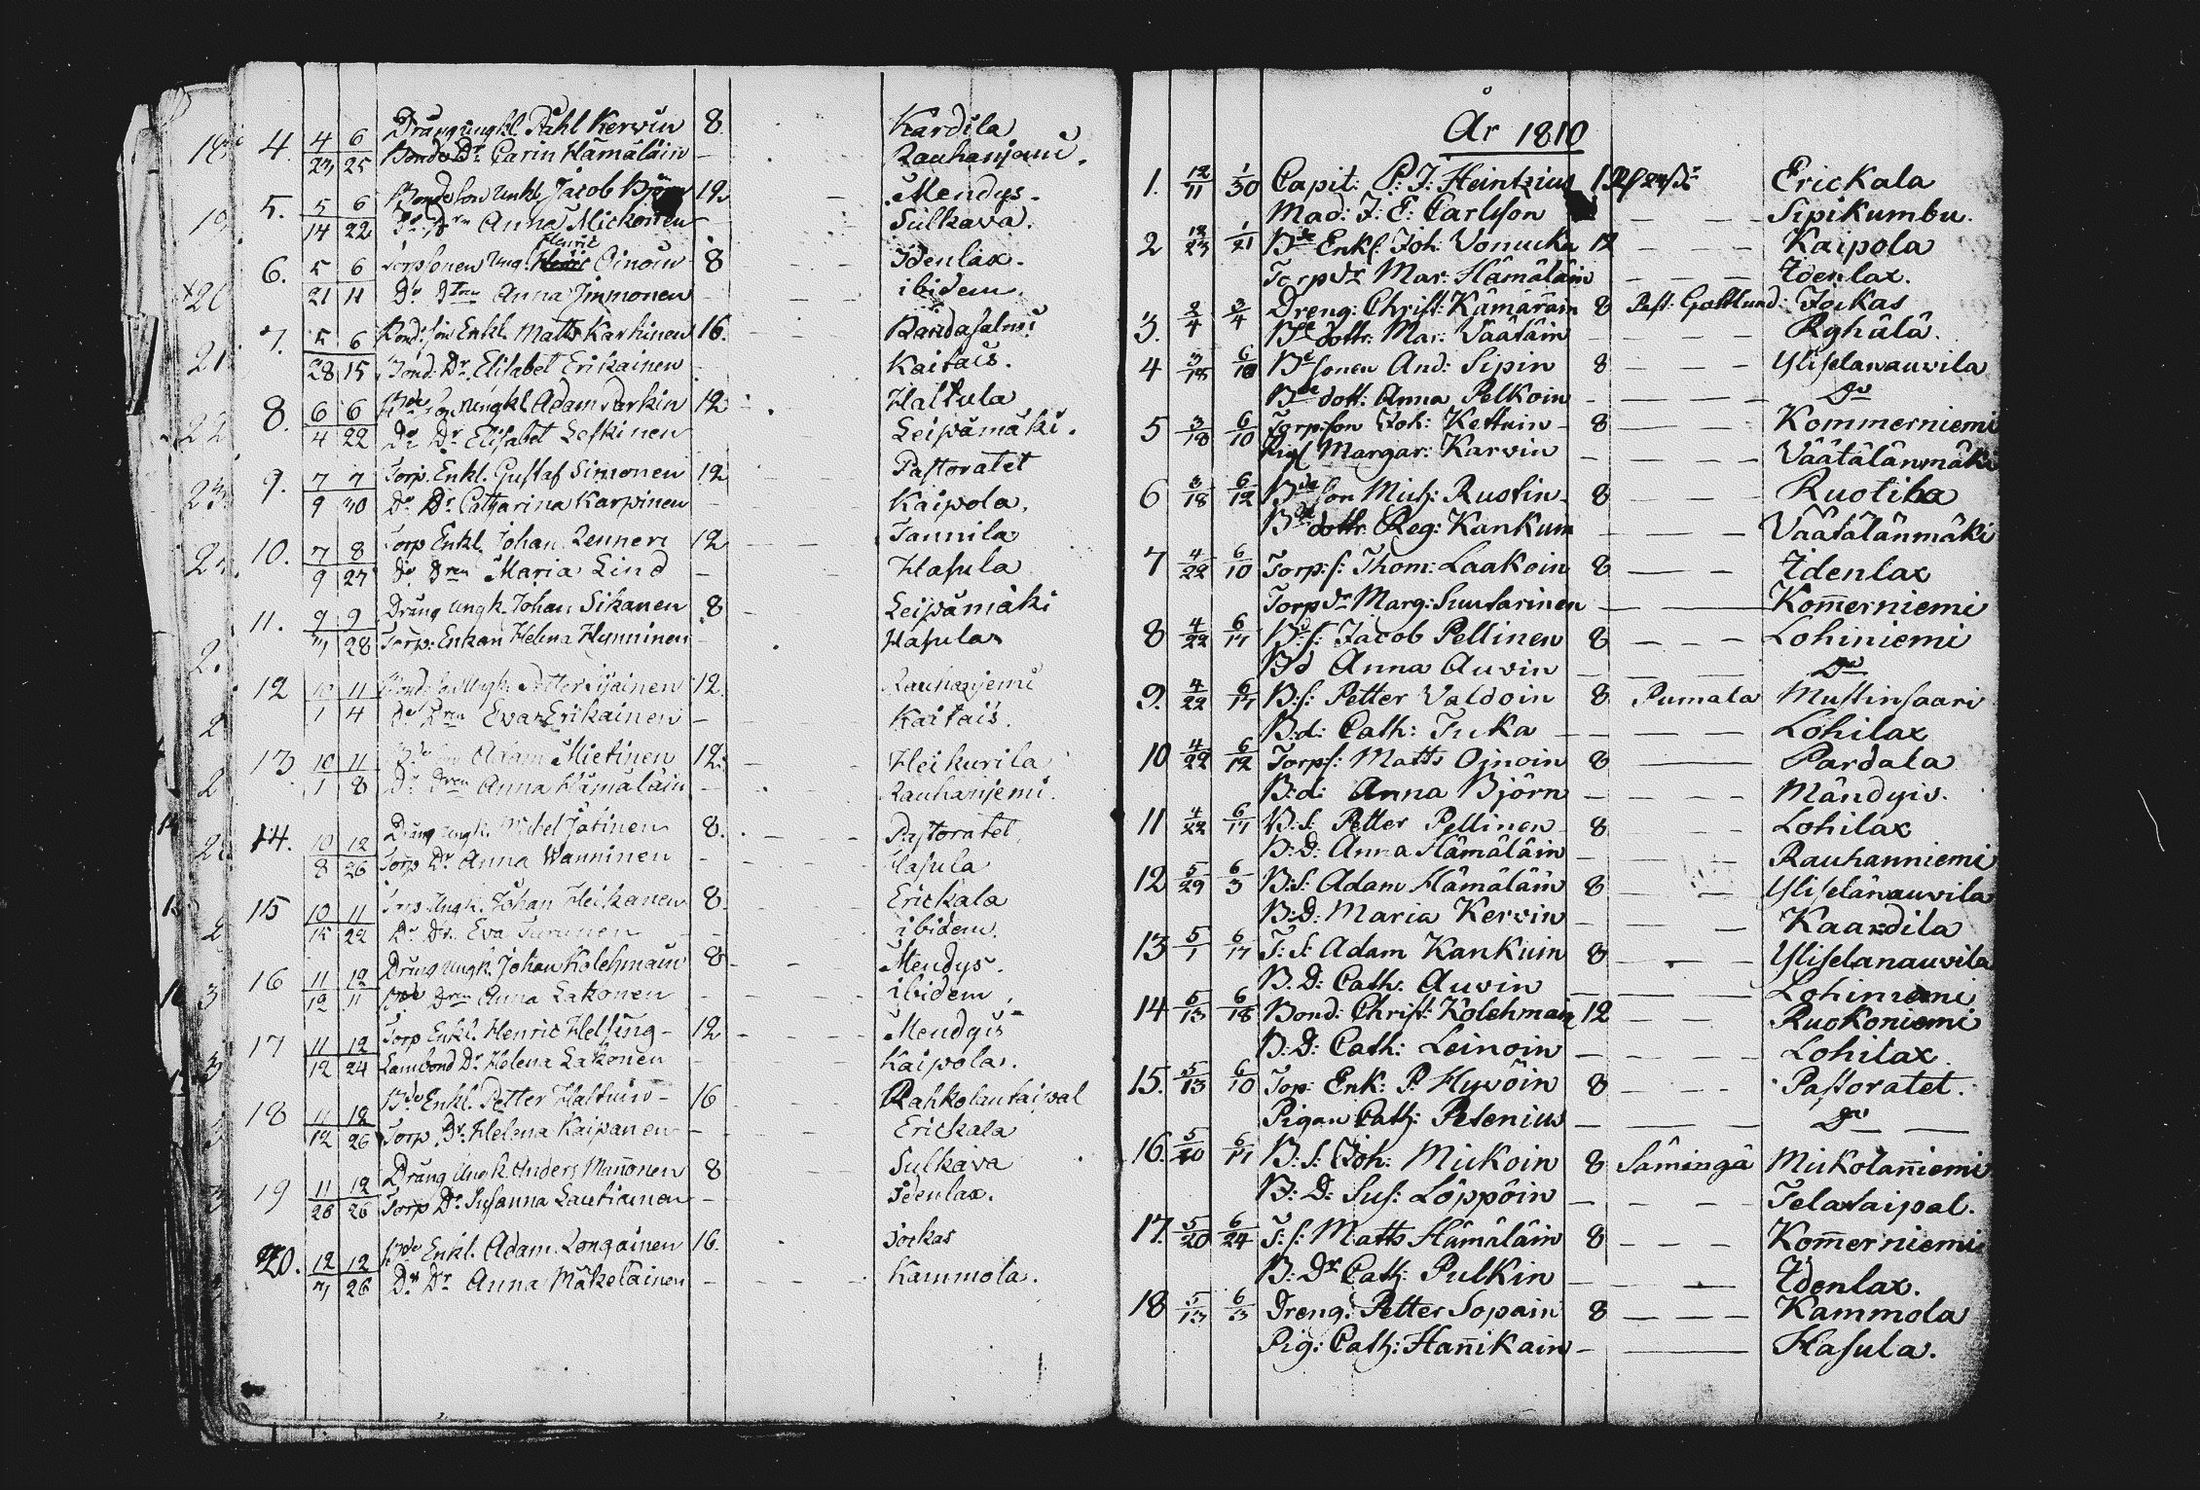 4. 4 6 Dräng ungkl. Påhl Kervin 8. Kardila
23 25 Bonde Dr. Carin Hämäläin Rauhanjemi.
5. 5 6 Bonde son unkl. Jacob Björn 12. Mendys.
14 22 Anna Mickonen Sulkava.
Henric
6. 5 6 Torpsonen ung. Oinoin 8 Idenlax.
21 11 Do Dtrn Anna Immonen ibidem.
7. 5 6 Enkl. Matts Karhinen 16. Randasalmi
28 15 Bond. Dr. Elisabet Erikainen Kaitais.
8. 6 6 Bde son ungkl. Adam Parkin 12 Haltula
4 22 Do Dr Elisabet Leskinen Leipämäki.
9. 7 7 Torp. Enkl. Gustaf Simonen 12 Pastoratet
9 30 Do Dr. Catharina Karpinen Kaipola.
10. 7 8 Torp Enkl. Johan Renneri 12 Tannila
9 27 Do Dren Maria Lind Hasula
11. 9 9 Dräng ungk. Johan Sikanen 8 Leipämäki
7 28 Torp: Enkan Helena Hynninen Hasula
12 10 11 Petter Sijainen 12. Rauhanjemi
1 4 Do Dren Eva Erikainen Kaitais.
13 10 11 Adam Mietinen 12. Heikurila
1 8 Do Dren Anna Hämäläin Rauhanjemi.
14. 10 12 Dräng ungk. Michel Jätinen 8. Pastoratet
8 26 Torp Dr Anna Wanninen Hasula
15 10 11 Torp Ungk. Johan Heiskanen 8. Erickala
15 22 Do Dr. Eva Turunen ibidem.
16 11 12 Dräng ungk. Johan Kolehmain 8 Mendys.
12 11 Bde Drn Anna Lakonen ibidem.
17 11 12 Torp Enkl. Henric Helsing 12 Mendyis
12 24 Dr. Helena Lakonen Kaipola.
18 11 12 Bde Enkl. Petter Haltuin 16 Rahkolantaipal
12 26 Torp. Dr. Helena Kaipanen Erickala
19 11 12 Dräng Ungk. Anders Mañonen 8 Sulkava
26 26 Torp Dr Susanna Lautiainen Idenlax.
20. 12 12 Bde Enkl. Adam Longainen 16. Jockas
7 26 Do Dr Anna Mäkeläinen Kammola.
År 1810
1. 12/11 1/30 Capit: P: J: Heintzius Erickala
Mad: J: E: Carlsson Sipikumbu.
2 12/23 1/21 Bde Enkl. Joh: Vonucka 12 Kaipola
Torp dr Mar: Hämäläin Idenlax.
3. 2/4 3/4 Dreng: Christ: Kämäräin 8 Past: Gottlund: Jockas
Bde dottr. Mar: Väätäin Ryhälä.
4 3/18 6/10 Bdsonen And: Sipin 8 Yliselanauvila
Bde dott: Anna Pelkoin Do
5 3/18 6/10 Torp:son Joh: Kettuin 8 Kommerniemi
Pig: Margar: Karvin Väätälänmäki
6 3/18 6/12 Bde son Mich: Ruotin 8 Ruotila
Bde dottr. Reg: Kankuin Väätälänmäki
7 4/22 6/10 Torp:s: Thom: Laakoin 8 Idenlax
Torp dr Marg: Suutarinen Kom̄erniemi
8 4/22 6/17 Bd:s: Jacob Pellinen 8 Lohiniemi
Bd Anna Auvin Do
9. 4/22 6/17 B:s: Petter Valdoin 8 Pumala Mustinsaari
B:d: Cath: Tuka Lohilax
10 4/22 6/12 Torp:s: Matts Oinoin 8 Pardala
B:d: Anna Björn Mändyis.
11 4/22 6/17 B:s: Petter Pellinen 8 Lohilax
B:D: Anna Hämäläin Rauhanniemi
12 5/29 6/3 B:s: Adam Hämäläin 8 Yliselänauvila
B:D: Maria Kervin Kaardila
13 5/1 6/17 T:s: Adam Kankuin 8 Yliselanauvila
B:D: Cath: Auvin Lohiniemi
14 5/13 6/18 Bond: Christ: Kolehmain 12 Ruokoniemi
B:D: Cath: Leinoin Lohilax
15. 5/13 6/10 Torp: Enk: P: Hyvöin 8 Pastoratet.
Pigan Cath: Petenius Do
16. 5/20 6/17 B:s: Joh: Mickoin 8 Sämingä Mikolan̄iemi
B:D: Sus: Löppöin Telataipal.
17. 5/20 6/24 T:s: Matts Hämäläin 8 Kom̄erniemi
B:Dr Cath: Pulkin Idenlax.
18 5/13 6/3 Dreng: Petter Sopain 8 Kammola
Pig: Cath: Han̄ikain Hasula.